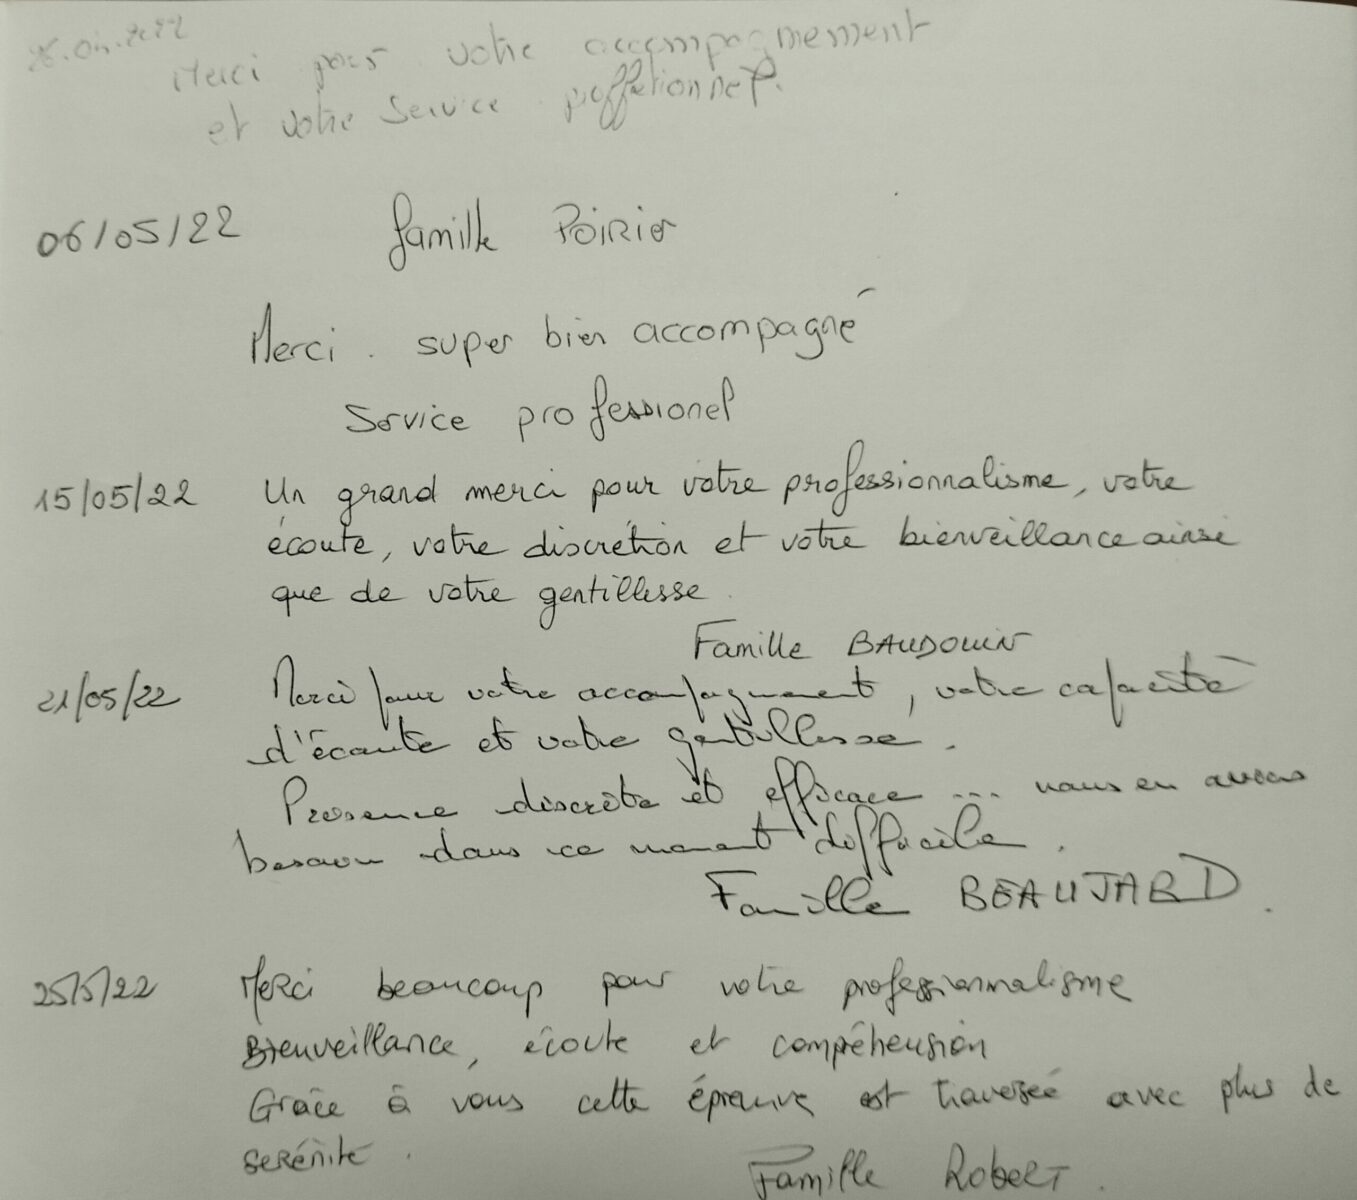 26.04.2022
Merci pour votre accompagnement
et votre service proffetionnel.
06/05/22 famille Poirier
Merci. super bien accompagné
Service professionel
15/05/22 Un grand merci pour votre professionnalisme, votre
écoute, votre discrétion et votre bienveillance ainsi
que de votre gentillesse.
Famille BAUDOUIN
21/05/22 Merci pour votre accompagnement, votre capacité
d'écoute et votre gentillesse.
Présence discrète et efficace ... nous en avions
besoin dans ce moment difficile.
Famille BEAUJARD.
25/5/22 Merci beaucoup pour votre professionnalisme
Bienveillance, écoute et compréhension
Grâce à vous cette épreuve est traversée avec plus de
sérénité.
Famille Robert.